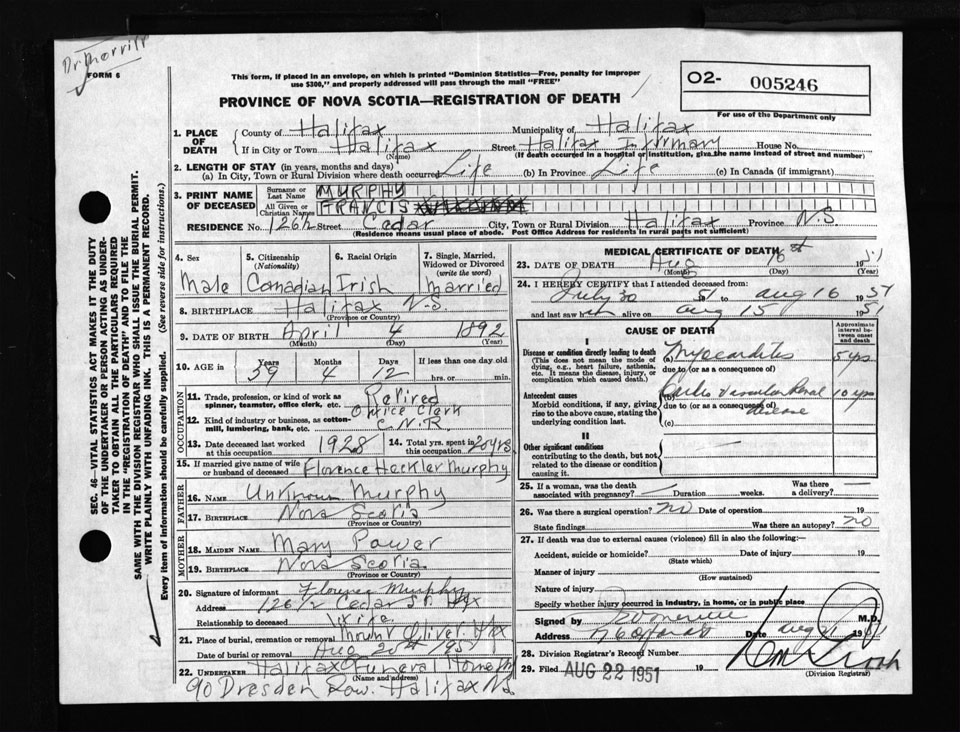 Dr Morrill
FORM 6
This form, if placed in an envelope, on which is printed "Dominion Statistics—Free, penalty for improper
use $300," and properly addressed will pass through the mail "FREE"
O2- 005246
For use of the Department only
PROVINCE OF NOVA SCOTIA—REGISTRATION OF DEATH
1. PLACE OF DEATH { County of Halifax Municipality of Halifax
If in City or Town Halifax Street Halifax Infirmary House No.
(Name) (If death occurred in a hospital or institution, give the name instead of street and number)
2. LENGTH OF STAY (in years, months and days)
(a) In City, Town or Rural Division where death occurred Life (b) In Province Life (c) In Canada (if immigrant)
3. PRINT NAME OF DECEASED Surname or Last Name MURPHY
All Given or Christian Names FRANCIS
RESIDENCE No. 126½ Street Cedar City, Town or Rural Division Halifax Province N.S
(Residence means usual place of abode. Post Office Address for residents in rural parts not sufficient)
4. Sex 5. Citizenship (Nationality) 6. Racial Origin 7. Single, Married, Widowed or Divorced (write the word)
Male Canadian Irish Married
8. BIRTHPLACE Halifax N.S.
(Province or Country)
9. DATE OF BIRTH April 4 1892
(Month) (Day) (Year)
10. AGE in Years Months Days If less than one day old
59 4 12 hrs. or min.
OCCUPATION
11. Trade, profession, or kind of work as spinner, teamster, office clerk, etc. Retired
Office Clerk
12. Kind of industry or business, as cotton-mill, lumbering, bank, etc. C.N.R.
13. Date deceased last worked at this occupation 1928 14. Total yrs. spent in this occupation 20 yrs.
15. If married give name of wife or husband of deceased Florence Heckler Murphy
FATHER
16. Name Unknown Murphy
17. BIRTHPLACE Nova Scotia
(Province or Country)
MOTHER
18. MAIDEN NAME Mary Power
19. BIRTHPLACE Nova Scotia
(Province or Country)
20. Signature of informant Florence Murphy
Address 126½ Cedar St. Hfx
Relationship to deceased Wife
21. Place of burial, cremation or removal Mount Olivet Hfx
Date of burial or removal Aug 20th 1951
22. UNDERTAKER Halifax Funeral Home
(Name and address)
90 Dresden Row. Halifax N.S.
MEDICAL CERTIFICATE OF DEATH
23. DATE OF DEATH Aug 16 1951
(Month) (Day) (Year)
24. I HEREBY CERTIFY that I attended deceased from:
July 30 51 to Aug 16 1951
and last saw him alive on Aug 15 1951
CAUSE OF DEATH
Approximate interval between onset and death
I
Disease or condition directly leading to death
(This does not mean the mode of dying, e.g., heart failure, asthenia, etc. It means the disease, injury, or complication which caused death.)
(a) Myocarditis 5 yrs
due to (or as a consequence of)
Antecedent causes
Morbid conditions, if any, giving rise to the above cause, stating the underlying condition last.
(b) Cardio Vascular Renal 10 yrs
due to (or as a consequence of)
disease
(c)
II
Other significant conditions
contributing to the death, but not related to the disease or condition causing it.
25. If a woman, was the death associated with pregnancy? Duration weeks. Was there a delivery?
26. Was there a surgical operation? NO Date of operation 19
State findings Was there an autopsy? NO
27. If death was due to external causes (violence) fill in also the following:—
Accident, suicide or homicide? Date of injury 19
(State which)
Manner of injury
(How sustained)
Nature of injury
Specify whether injury occurred in industry, in home, or in public place
Signed by M.D.
Address Date Aug 1951
28. Division Registrar's Record Number
29. Filed AUG 22 1951 19
(Division Registrar)
SEC. 46—VITAL STATISTICS ACT MAKES IT THE DUTY
OF THE UNDERTAKER OR PERSON ACTING AS UNDER-
TAKER TO OBTAIN ALL THE PARTICULARS REQUIRED
IN THE "REGISTRATION OF DEATH" AND TO FILE THE
SAME WITH THE DIVISION REGISTRAR WHO SHALL ISSUE THE BURIAL PERMIT.
WRITE PLAINLY WITH UNFADING INK. THIS IS A PERMANENT RECORD.
Every item of information should be carefully supplied. (See reverse side for instructions.)